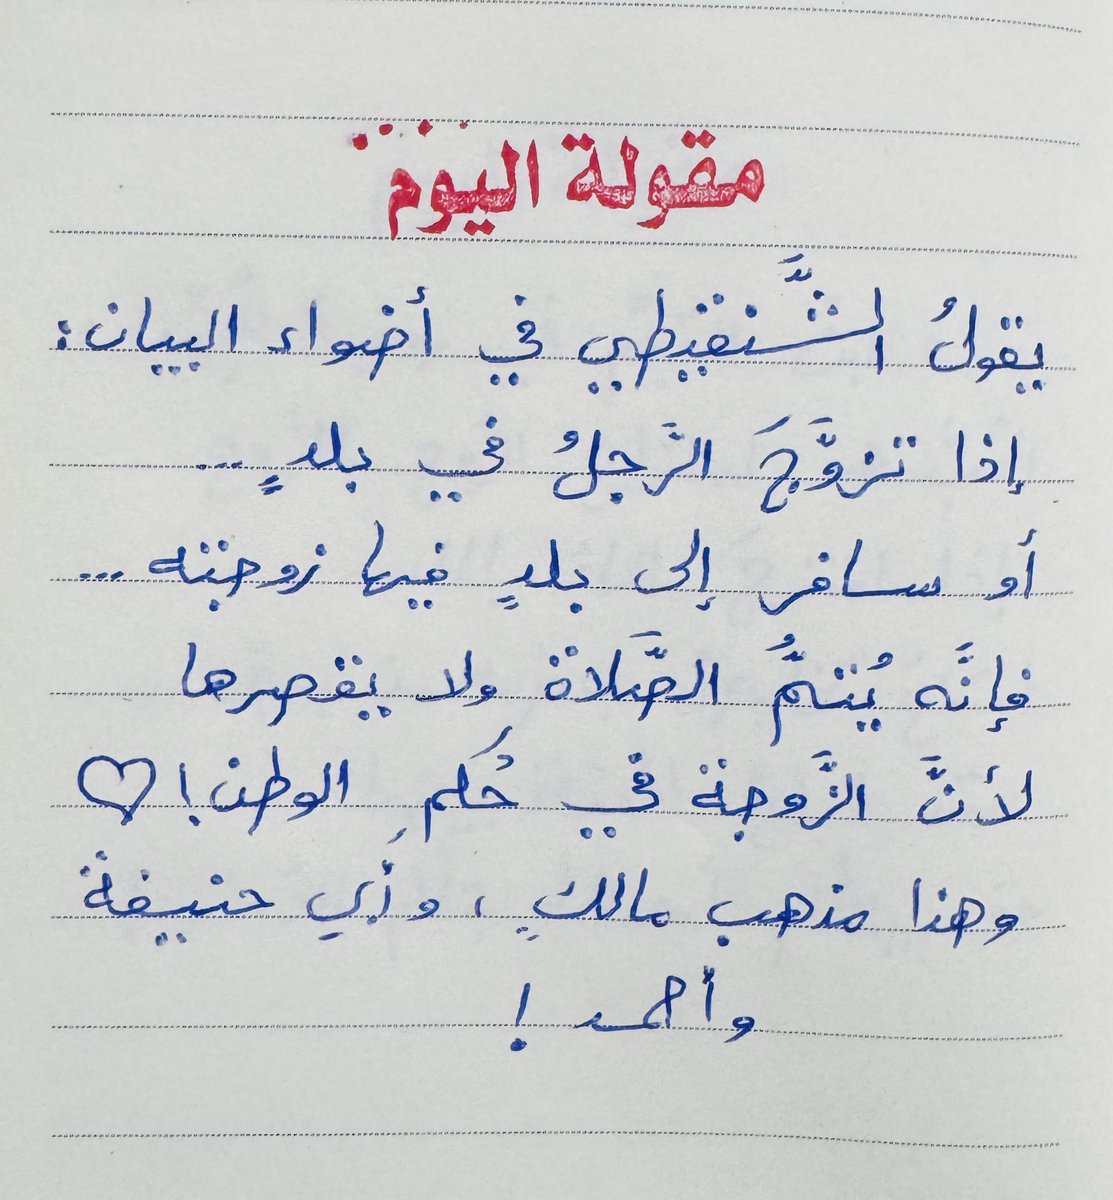 مقولة اليوم
يقولُ الشَّنقيطي في أضواء البيان:
إذا تزوَّجَ الرَّجلُ في بلدٍ ...
أو سافر إلى بلدٍ فيها زوجته ...
فإنَّه يُتمُّ الصَّلاة ولا يقصرها
لأنَّ الزَّوجة في حُكمِ الوطن! ♡
وهذا مذهب مالكٍ، وأبي حنيفة
وأحمد!